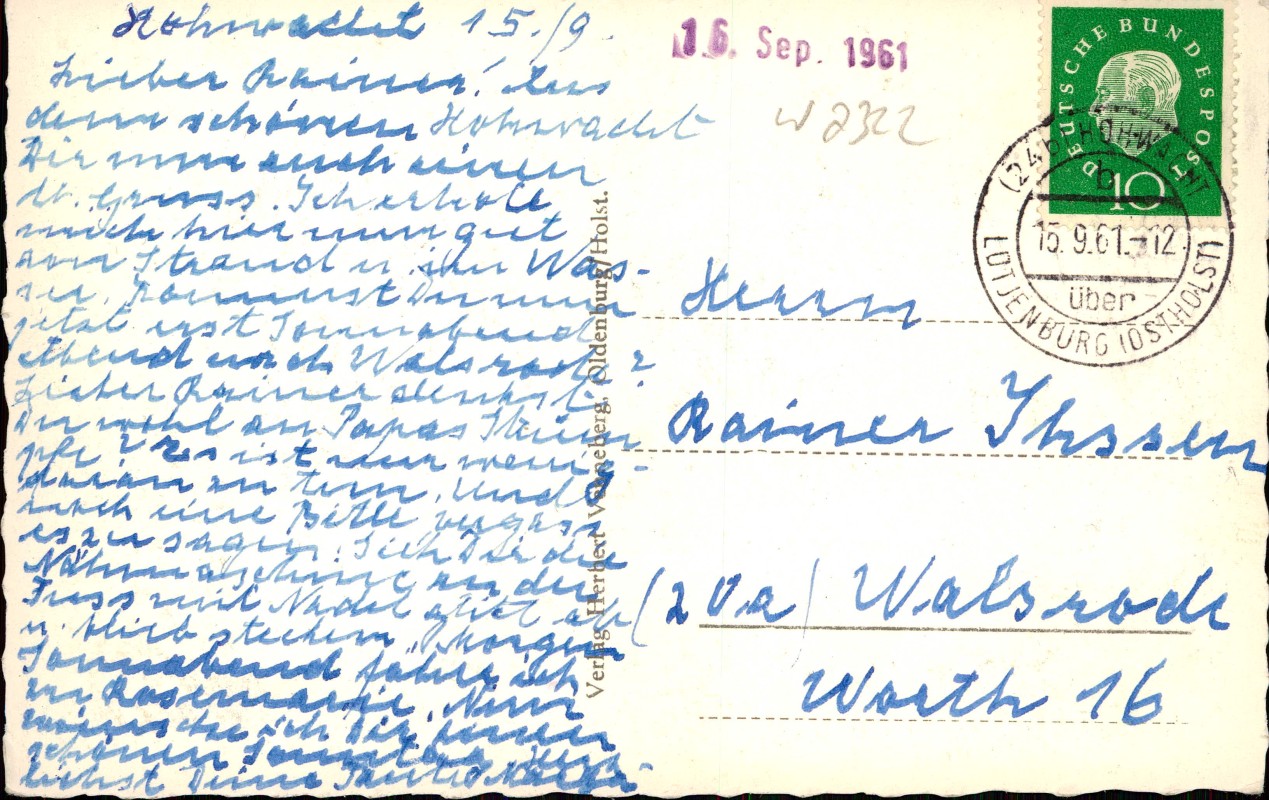 Hohwacht 15./9.
Lieber Rainer! Aus
dem schönen Hohwacht
Dir nun auch einen
lb. Gruss. Ich erhole
mich hier nun gut
am Strand u. im Was-
ser. Kommst Du nun
jetzt erst Sonnabend
abend nach Walsrode?
Lieber Rainer denkst
Du wohl an Papas
? Es ist nur wenig
daran zu tun. Und
noch eine Bitte, vergass
es zu sagen. Sieh Dir die
Nähmaschine an der
Fuss mit Nadel glitt ab
u. blieb stecken. Morgen
Sonnabend fahre ich
zu Rosemarie. Nun
wünsche ich Dir einen
schönen Sonntag. Herz-
lichst Deine Tante
Verlag Herbert Wanneberg, Oldenburg/Holst.
16. Sep. 1961
W 2322
DEUTSCHE BUNDESPOST
10
(24b) HOHWACHT
b
15.9.61.-12
über
LÜTJENBURG (OSTHOLST)
Herrn
Rainer Ihssen
(20a) Walsrode
Worth 16